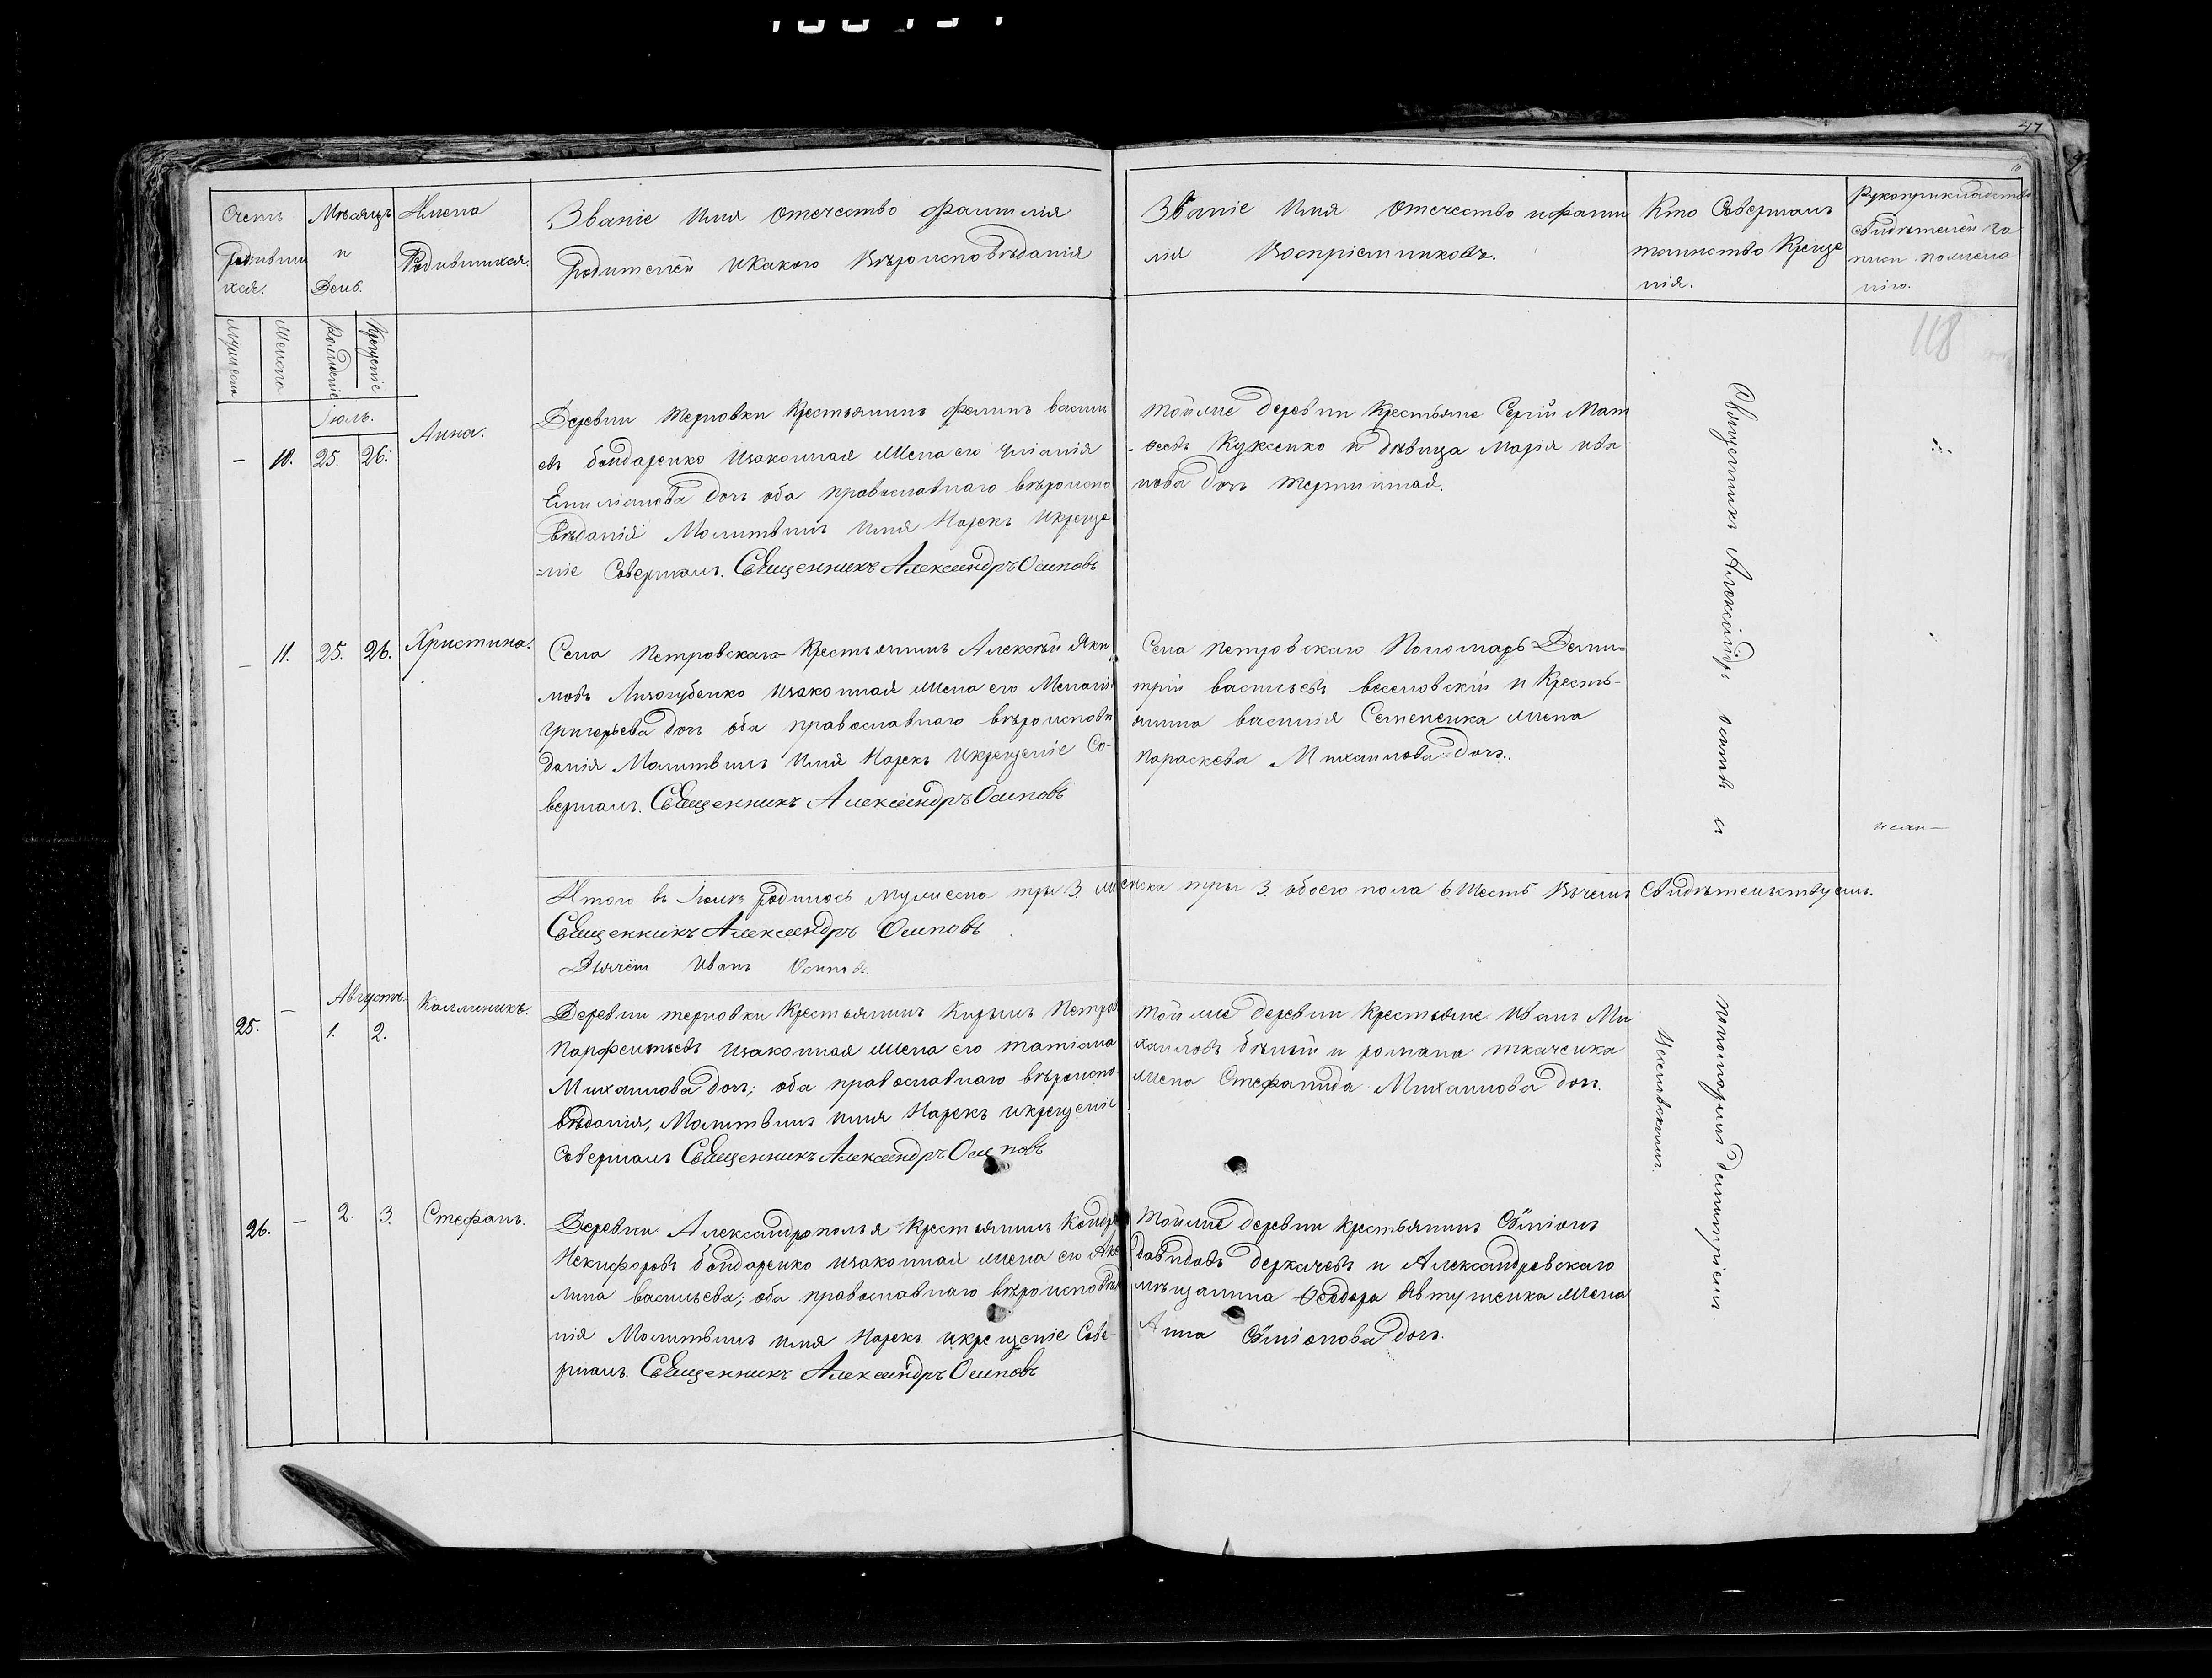 47
Счетъ родившихся.
Мѣсяцъ и День.
Имена Родившихся.
Званіе Имя Отечество Фамилія
Родителей и какого Вѣроисповѣданія
Званіе Имя Отечество и фами
лія Воспріемниковъ.
Кто Совершалъ
таинство Креще
нія.
Рукоприкладство
свидѣтелей за
писи по желла
нію.
Мужеска
Женска
Рожденіе
Крещеніе
118
Іюль.
— 10. 25. 26. Анна.
Деревни терновки Крестьянинъ Филипъ васил
евъ бондаренко и законная Жена его Уліанія
Емиліанова дочь оба православнаго вѣроиспо
вѣданія Молитвилъ имя Нарекъ и креще
=ніе Совершалъ. Священникъ Александръ Осиповъ
Той же деревни Крестьяне Сергій Мат
веевъ Куксенко и дѣвица Марія ива
нова дочь
— 11. 25. 26. Христина.
Села Петровскаго Крестьянинъ Алексѣй Яки
мовъ Лизогубенко и законная жена его Меланія
григорьева дочь оба православнаго вѣроисповѣ
данія Молитвилъ имя Нарекъ и крещеніе Со-
вершалъ. Священникъ Александръ Осиповъ
Села петровскаго Пономарь Дими=
трій васильевъ веселовскій и Кресть-
янина василія Семененка жена
параскева Михаилова дочь.
Священникъ Александръ осиповъ и
Итого въ Іюлѣ родилось мужеска три 3. женска три 3. обоего пола 6 Шесть Въ чемъ Свидѣтельствуемъ.
Священникъ Александръ Осиповъ
Дьячёкъ Иванъ Осиповъ.
Августъ.
25. — 1. 2. Каллиникъ.
Деревни терновки Крестьянинъ Кирылъ Петровъ
Парфентьевъ и законная жена его татіана
Михаилова дочь; оба православнаго вѣроиспо-
вѣданія, Молитвилъ имя Нарекъ и крещеніе
совершалъ Священникъ Александръ Осиповъ
Той же деревни Крестьяне Иванъ Ми
хаиловъ бѣлый и романа ткаченка
жена Стефанида Михаилова дочь.
26. — 2. 3. Стефанъ.
Деревни Александрополья Крестьянинъ
Никифоровъ бондаренко и законная жена его Аку
лина васильева; оба православнаго вѣроисповѣда
нія Молитвилъ имя Нарекъ и крещеніе Сове-
ршалъ. Священникъ Александръ Осиповъ
Той же деревни крестьянинъ Сѵміонъ
давидовъ деркачевъ и Александровскаго
мѣщанина Ѳеодора Автушенка жена
Анна Сѵміонова дочь.
пономаремъ димитріемъ